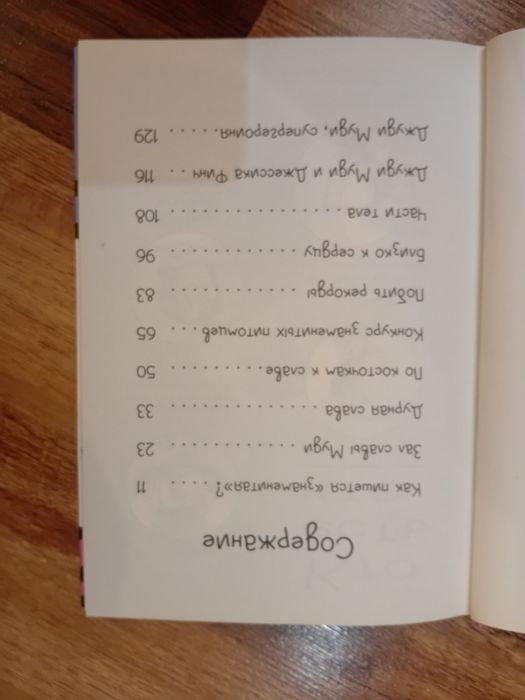 Содержание
Как пишется «знаменитая»? . . . . 11
Зал славы Муди . . . . . . . . . . . . . 23
Дурная слава . . . . . . . . . . . . . . . 33
По косточкам к славе . . . . . . . . . 50
Конкурс знаменитых питомцев . . . 65
Побить рекорды . . . . . . . . . . . . 83
Близко к сердцу . . . . . . . . . . . . 96
Части тела . . . . . . . . . . . . . . . . . 108
Джуди Муди и Джессика Финч . . 116
Джуди Муди, супергероиня. . . . . . 129